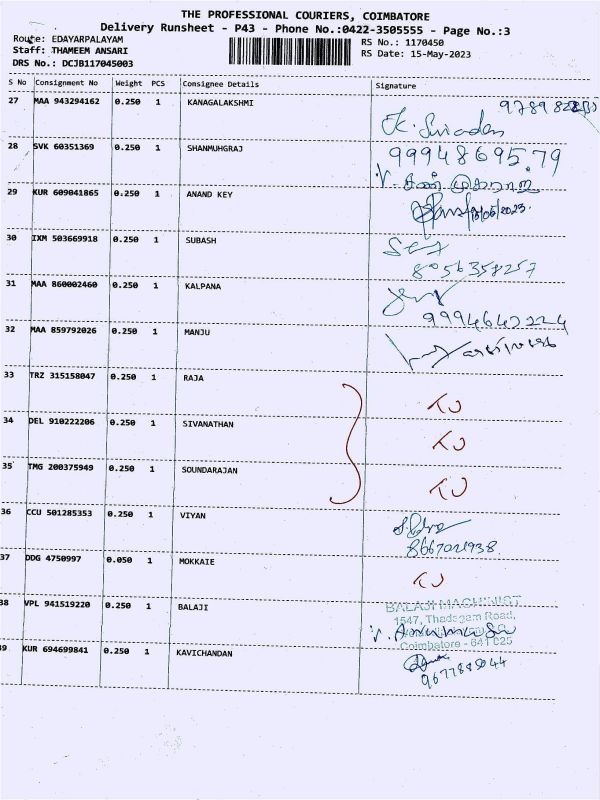 THE PROFESSIONAL COURIERS, COIMBATORE
Delivery Runsheet - P43 - Phone No.:0422-3505555 - Page No.:3
Route: EDAYARPALAYAM
RS No.: 1170450
Staff: THAMEEM ANSARI
RS Date: 15-May-2023
DRS No.: DCJB117045003
S No Consignment No Weight PCS Consignee Details Signature
27 MAA 943294162 0.250 1 KANAGALAKSHMI
28 SVK 60351369 0.250 1 SHANMUHGRAJ 99948695.79
29 KUR 609041865 0.250 1 ANAND KEY
30 IXM 503669918 0.250 1 SUBASH
8056358257
31 MAA 860002460 0.250 1 KALPANA
32 MAA 859792026 0.250 1 MANJU
33 TRZ 315158047 0.250 1 RAJA
34 DEL 910222206 0.250 1 SIVANATHAN
35 TMG 200375949 0.250 1 SOUNDARAJAN
36 CCU 501285353 0.250 1 VIYAN
8667021938
37 DDG 4750997 0.050 1 MOKKAIE
38 VPL 941519220 0.250 1 BALAJI
BALAJI MACHINIST
1547, Thadagam Road,
Coimbatore - 641 025
39 KUR 694699841 0.250 1 KAVICHANDAN